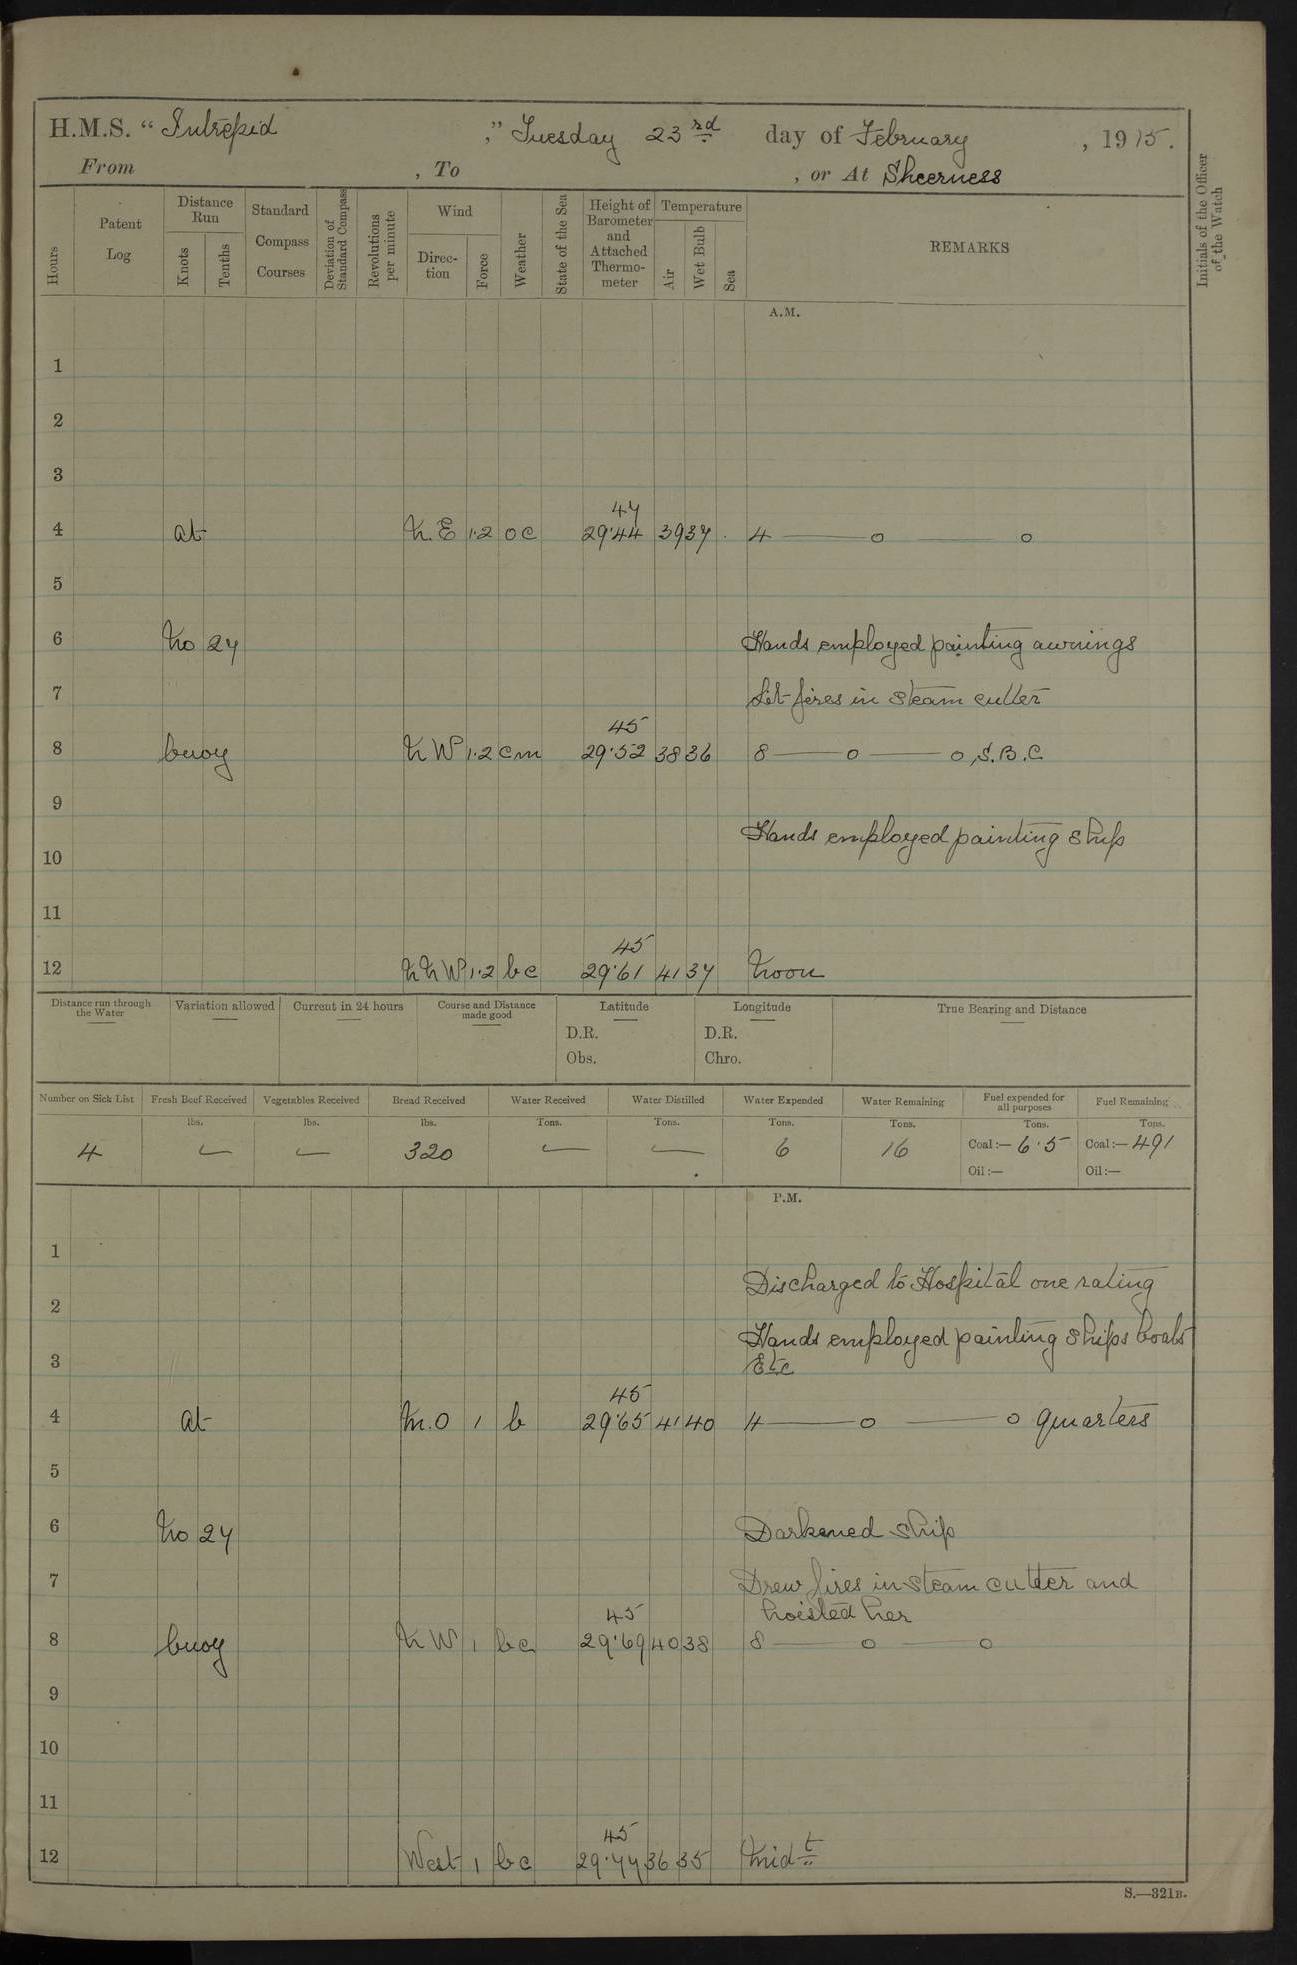 H.M.S. “ Intrepid ,” Tuesday 23rd day of February , 1915.
From , To , or At Sheerness
Hours
Patent Log
Distance Run
Knots
Tenths
Standard Compass Courses
Deviation of Standard Compass
Revolutions per minute
Wind
Direc-tion
Force
Weather
State of the Sea
Height of Barometer and Attached Thermo-meter
Temperature
Air
Wet Bulb
Sea
REMARKS
Initials of the Officer of the Watch
A.M.
1
2
3
47
4 at N.E 1.2 oc 29.44 39 37 4 —— o —— o
5
6 No 27 Hands employed painting awnings
7 Lit fires in steam cutter
45
8 buoy NW 1.2 cm 29.52 38 36 8 —— o —— o, S.B.C
9
Hands employed painting ship
10
11
45
12 NNW 1.2 bc 29.61 41 37 Noon
Distance run through the Water
Variation allowed
Current in 24 hours
Course and Distance made good
Latitude
D.R.
Obs.
Longitude
D.R.
Chro.
True Bearing and Distance
Number on Sick List Fresh Beef Received Vegetables Received Bread Received Water Received Water Distilled Water Expended Water Remaining Fuel expended for all purposes Fuel Remaining
lbs. lbs. lbs. Tons. Tons. Tons. Tons. Tons. Tons.
4 — — 320 — — 6 16 Coal :— 6.5 Coal :— 491
Oil :— Oil :—
P.M.
1
Discharged to Hospital one rating
2
Hands employed painting ships boats
3 Etc
45
4 at 1 b 29.65 41 40 4 —— o —— o quarters
5
6 No 27 Darkened ship
7 Drew fires in steam cutter and
hoisted her
45
8 buoy NW 1 bc 29.69 40 38 8 —— o —— o
9
10
11
45
12 West 1 bc 29.77 36 35 Midt
S.—321B.